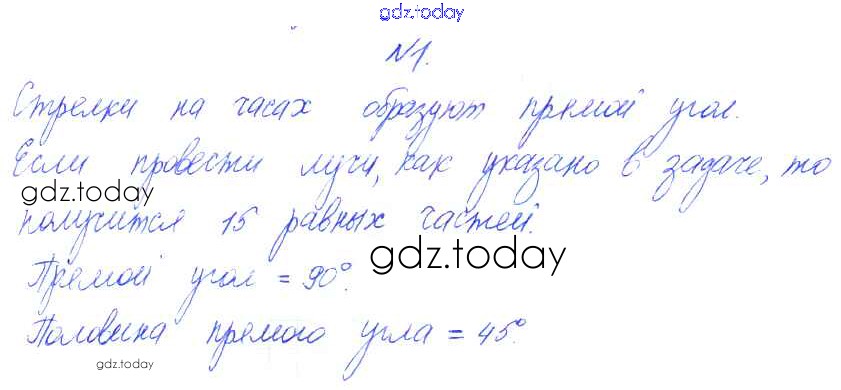 gdz.today
№1.
Стрелки на часах образуют прямой угол.
Если провести лучи, как указано в задаче, то
gdz.today
получится 15 равных частей.
Прямой угол = 90°.
gdz.today
Половина прямого угла = 45°.
gdz.today